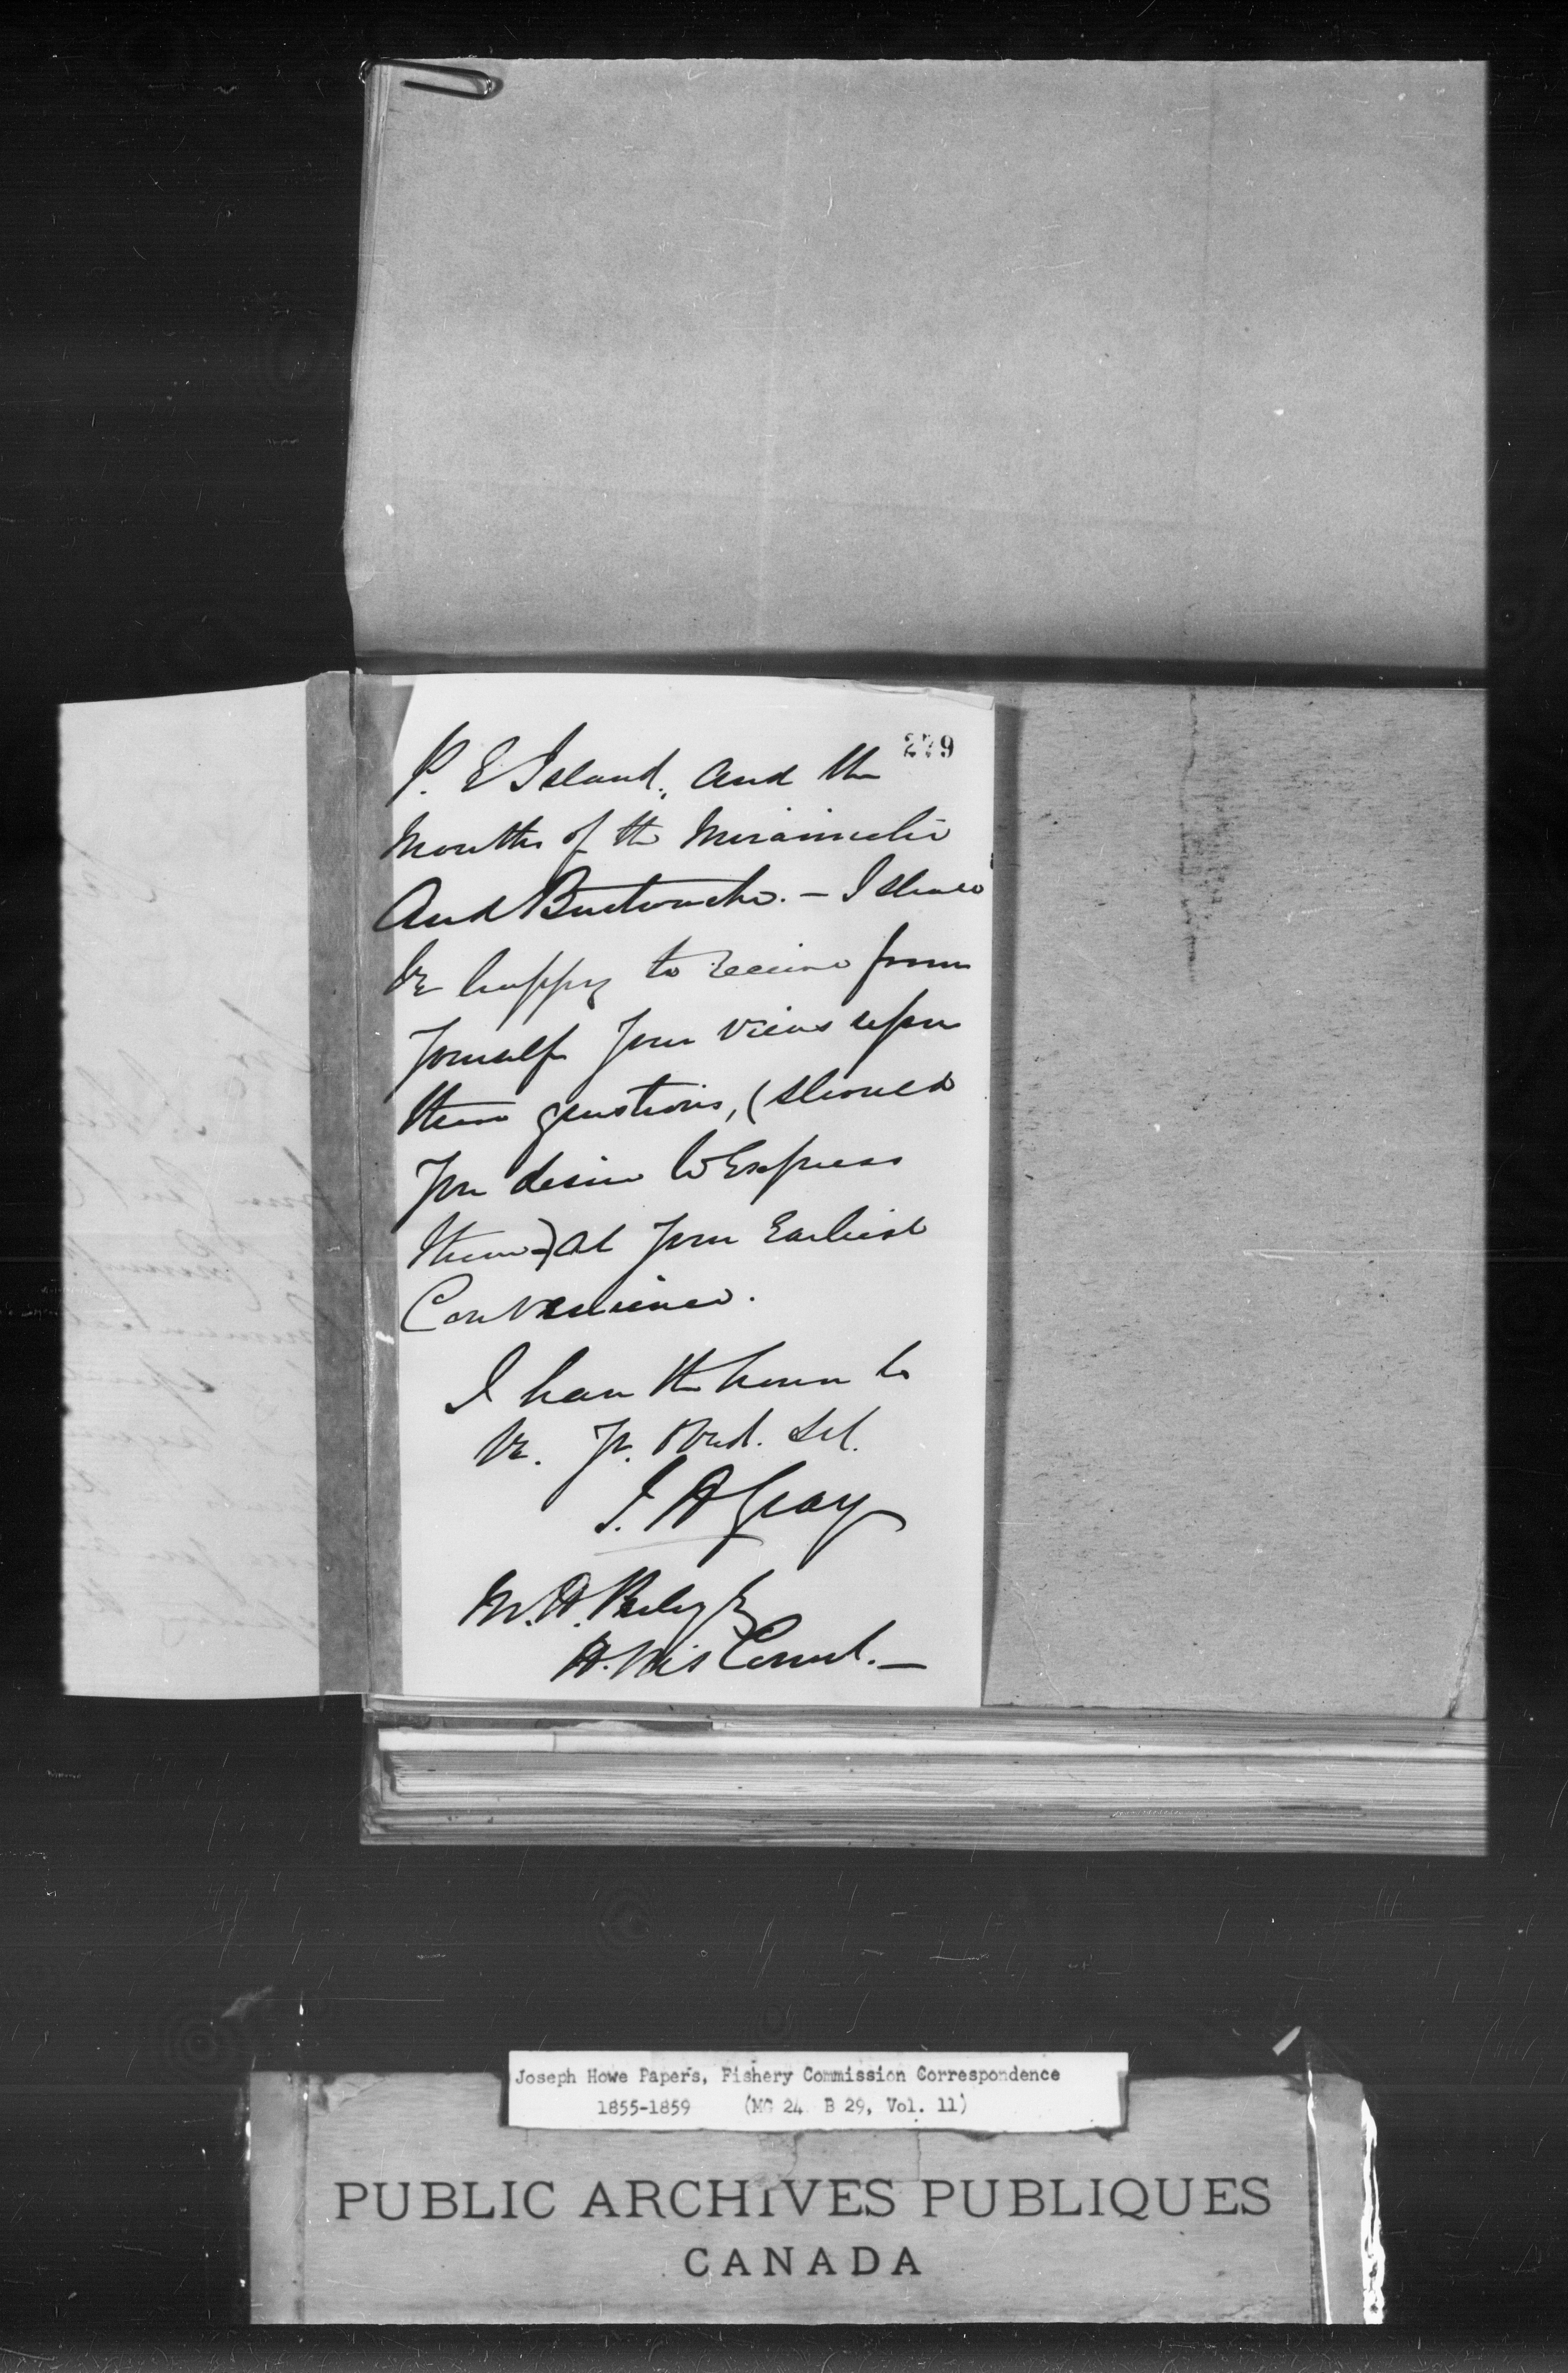 279
P. E Island, and the
Mouths of the Miramichi
And Buctouche. – I shall
be happy to receive from
Yourself Your views upon
these questions, (should
You desire to Express
them) at Your Earliest
Convenience.
I have the honor to
be. Yr. Obed. Set.
J. H Gray
M. H. Perley Esq
H. M's Comml. —
Joseph Howe Papers, Fishery Commission Correspondence
1855-1859 (MG 24 B 29, Vol. 11)
PUBLIC ARCHIVES PUBLIQUES
CANADA